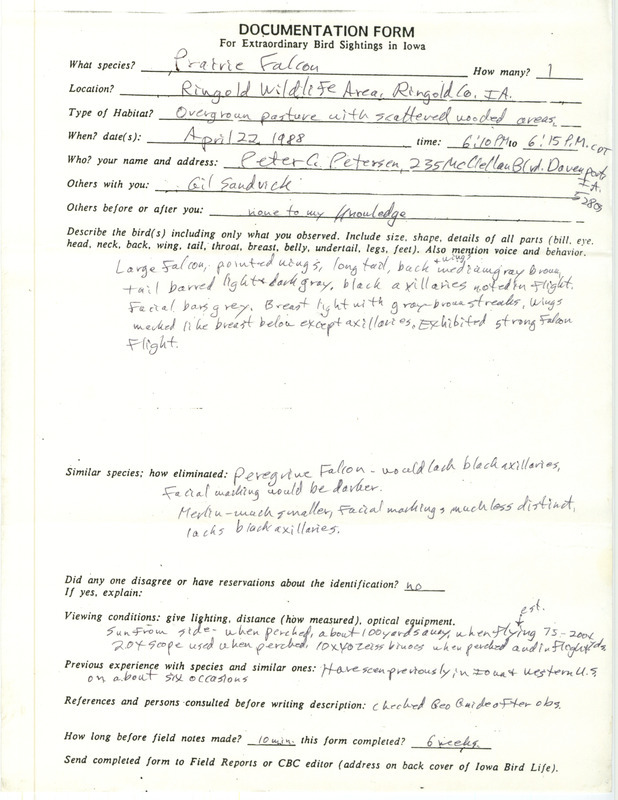 DOCUMENTATION FORM
For Extraordinary Bird Sightings in Iowa
What species? Prairie Falcon How many? 1
Location? Ringold Wildlife Area, Ringold Co. IA.
Type of Habitat? Overgrown pasture with scattered wooded areas.
When? date(s): April 22 1988 time: 6:10 PM to 6:15 P.M. CDT
Who? your name and address: Peter C. Petersen, 235 McClellan Blvd. Davenport
IA.
52803
Others with you: Gil Sandvick
Others before or after you: none to my knowledge
Describe the bird(s) including only what you observed. Include size, shape, details of all parts (bill, eye,
head, neck, back, wing, tail, throat, breast, belly, undertail, legs, feet). Also mention voice and behavior.
Large Falcon, pointed wings, long tail, back + wings medium gray brown,
tail barred light + dark gray, black axillaries noted in flight.
Facial bars grey. Breast light with gray-brown streaks, wings
marked like breast below except axillaries. Exhibited strong Falcon
Flight.
Similar species; how eliminated: Peregrine Falcon - would lack black axillaries,
Facial marking would be darker.
Merlin - much smaller, Facial markings much less distinct,
lacks black axillaries.
Did any one disagree or have reservations about the identification? no
If yes, explain:
Viewing conditions: give lighting, distance (how measured), optical equipment.
est.
Sun from side - when perched, about 100 yards away, when flying 75-200 yds.
20x scope used when perched, 10x40 zeiss binocs when perched and in flight
Previous experience with species and similar ones: Have seen previously in Iowa + western U.S.
on about six occasions
References and persons consulted before writing description: checked Geo Guide after obs.
How long before field notes made? 10 min. this form completed? 6 weeks
Send completed form to Field Reports or CBC editor (address on back cover of Iowa Bird Life).